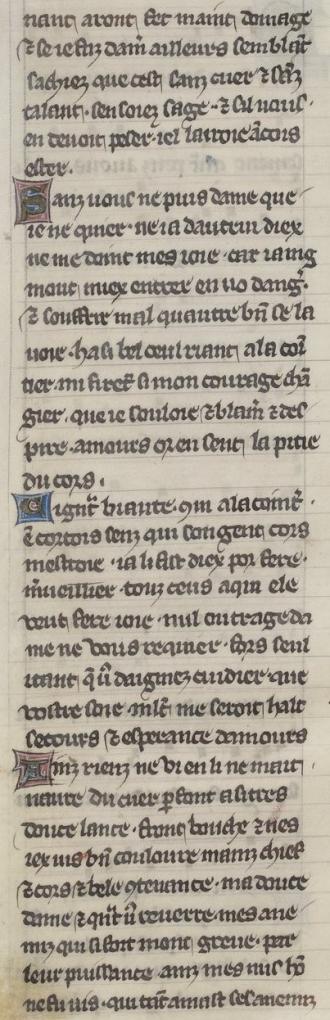 nauz auront fet maint domage
⁊ se ie faz dam̄ ailleurs semblāt
sachiez que cest sanz cuer ⁊ sāz
talant . sen soiez sage . ⁊ sil uous .
en deuoit peser . iel lairoie ācois
ester .
Sanz uous ne puis dame que
ie ne quier . ne ia dautrui diex
ne me doint mes ioie . car iaing
mout miex entrer en uo danḡ .
⁊ souffrir mal quautre bn̄ se la
uoie . ha si bel oeul riant a la coī
tier . mi firēt si mon courage chā
gier . que ie souloie ⁊ blam̄ ⁊ des
pire . amours or en sent la pitie
du cors .
Eignt̄ biaute . qui a la coint̄ .
ē cortois senz qui son gent cors
mestroie . ia li fist diex por fere .
m̄ueillier . touz ceus a qui ele
veut fere ioie . nul outrage da
me ne vous requier . fors seul
itant q̄ ū daigniez cuidier . que
vostre soie . mlt̄ me seroit halt
secours ⁊ esperance damours
Ainz riens ne vi en li ne mait .
naure du cuer ꝑfont a si tres
douce lance . front bouche ⁊ nes
iex uis bn̄ couloure mainz chief
⁊ cors ⁊ bele ꝯtenance . ma douce
dame ⁊ qnt̄ ū reuerre . mes ane
miz qui si fort mont greue . par
leur puissance . ainz mes nus hō
ne fu uis . qui tāt amast ses anemiz